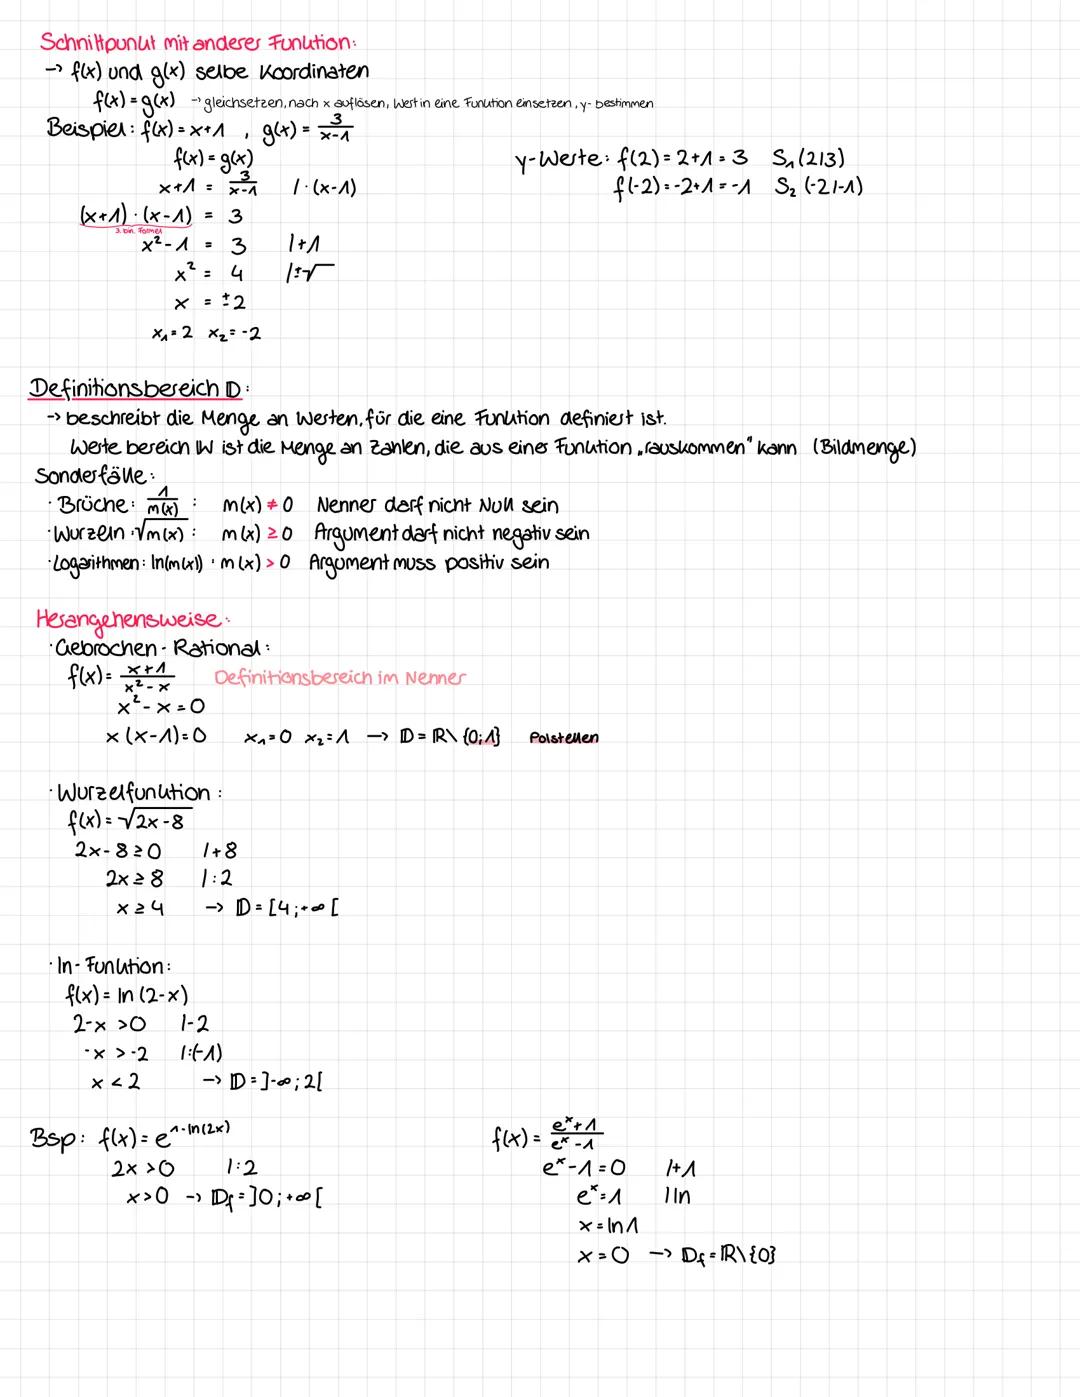 Schnittpunkt mit anderer Funktion:
→ f(x) und g(x) selbe Koordinaten
f(x) = g(x) → gleichsetzen, nach x auflösen, Wert in eine Funktion einsetzen, y- bestimmen
Beispiel: f(x) = x+1 , g(x) = 3/(x-1)
f(x) = g(x)
x+1 = 3/(x-1) | · (x-1)
(x+1) · (x-1) = 3
3. bin. Formel
x² - 1 = 3 | +1
x² = 4 | ±√
x = ±2
x₁ = 2 x₂ = -2
y-Werte: f(2) = 2+1 = 3 S₁ (2|3)
f(-2) = -2+1 = -1 S₂ (-2|-1)
Definitionsbereich 𝔻:
→ beschreibt die Menge an Werten, für die eine Funktion definiert ist.
Werte bereich W ist die Menge an Zahlen, die aus einer Funktion „rauskommen" kann (Bildmenge)
Sonderfälle:
· Brüche: 1/m(x) : m(x) ≠ 0 Nenner darf nicht Null sein
· Wurzeln: √m(x) : m(x) ≥ 0 Argument darf nicht negativ sein
· Logarithmen: ln(m(x)) : m(x) > 0 Argument muss positiv sein
Herangehensweise:
· Gebrochen - Rational:
f(x) = (x+1)/(x² - x) Definitionsbereich im Nenner
x² - x = 0
x (x-1) = 0 x₁ = 0 x₂ = 1 → 𝔻 = ℝ\ {0;1} Polstellen
· Wurzelfunktion:
f(x) = √2x - 8
2x - 8 ≥ 0 | +8
2x ≥ 8 | :2
x ≥ 4 → 𝔻 = [4; +∞[
· ln - Funktion:
f(x) = ln (2-x)
2-x > 0 | -2
-x > -2 | :(-1)
x < 2 → 𝔻 = ]-∞; 2[
Bsp: f(x) = e^(1-ln(2x))
2x > 0 | :2
x > 0 → 𝔻f = ]0; +∞[
f(x) = (eˣ+1)/(eˣ-1)
eˣ - 1 = 0 | +1
eˣ = 1 | ln
x = ln 1
x = 0 → 𝔻f = ℝ\{0}